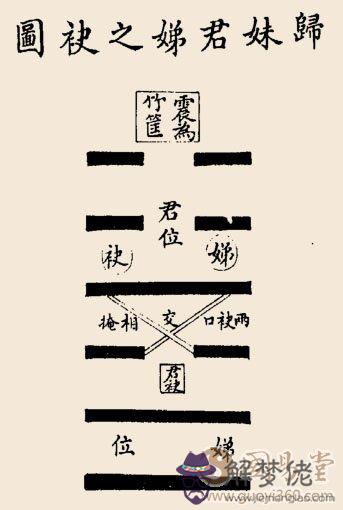 歸妹君娣之袂圖
震為
竹筐
君位
娣
袂
兩袂口交相掩
君袂
娣位
解梦佬
www.guoyi360.com